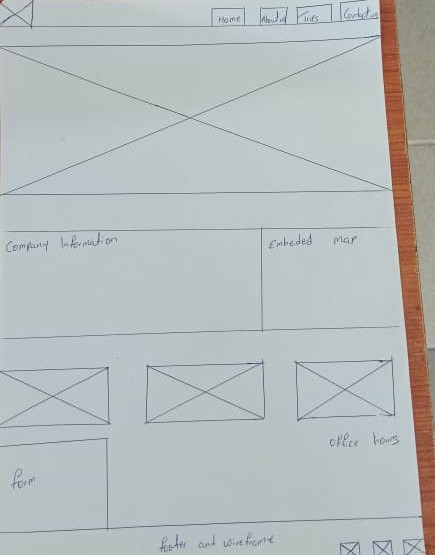 Home
About us
Contact us
Company Information
Embeded map
office hours
form
footer and wireframe